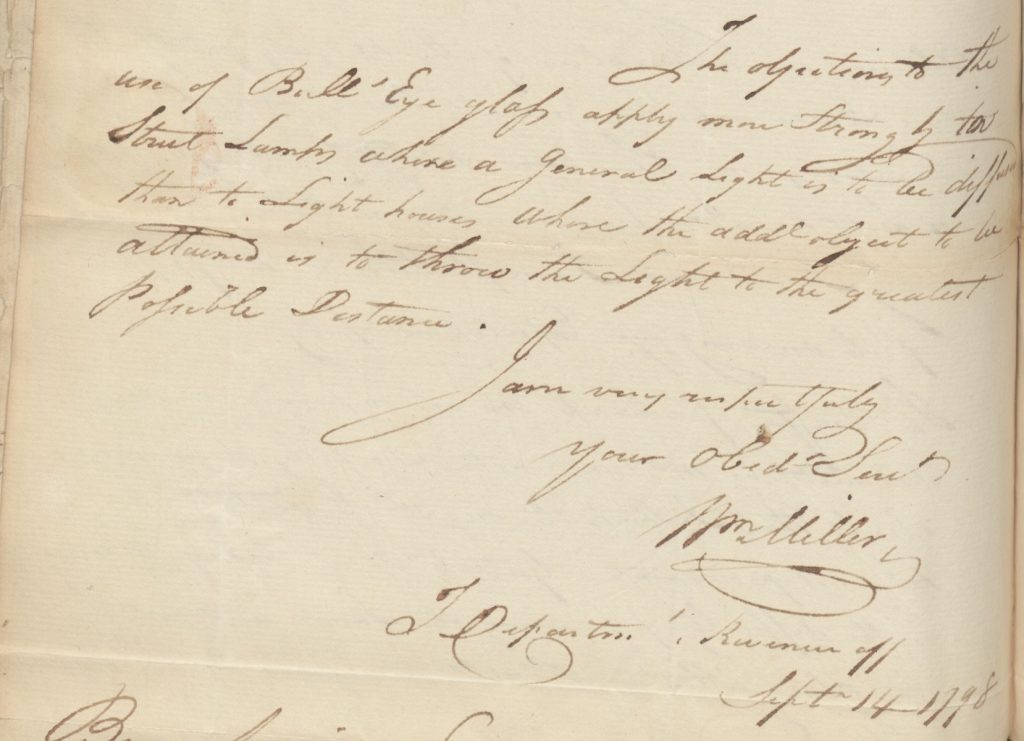 The objections to the
use of Bull's Eye glass apply more strongly to
Street Lamps where a General Light is to be diffused
than to Light houses where the addl object to be
attained is to throw the Light to the greatest
Possible Distance.
I am very respectfully
your Obedt Servt
Wm Miller
T Departmt. Revenue off
Septr 14 1798